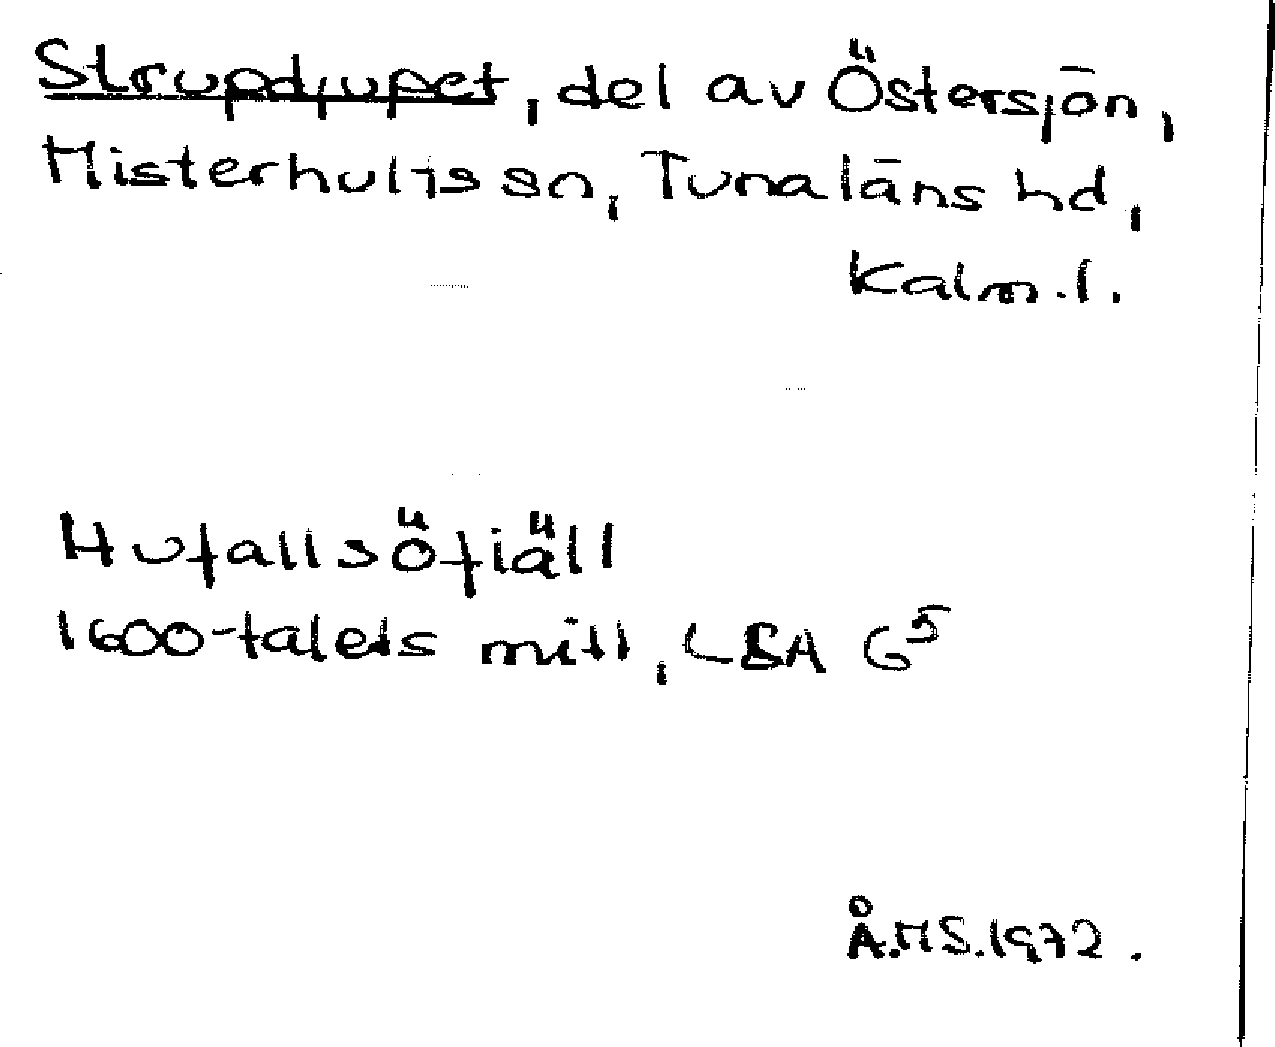 Strupdjupet, del av Östersjön,
Misterhults sn, Tunaläns hd,
Kalm.l.
Hufallsöfiäll
1600-talets mitt, LSA G5
Å.MS.1972.